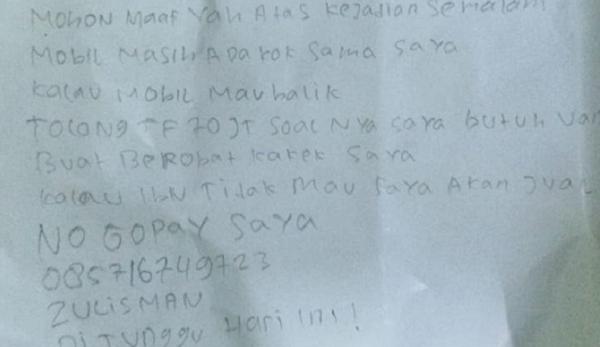 MOHON MAAF Yah ATAS KEJADIAN SEMALAM
MOBIL MASIH ADA KOK SAMA SAYA
KALAU MOBIL MAU balik
TOLONG TF 70 JT SOAL NYA SAYA butuh
BUAT BEROBAT KAKEK SAYA
KALAU IBU TIDAK MAU SAYA AKAN JUAL
NO GOPAY SAYA
085716749723
ZULISMAN
DI TUNGGU HARI INI!